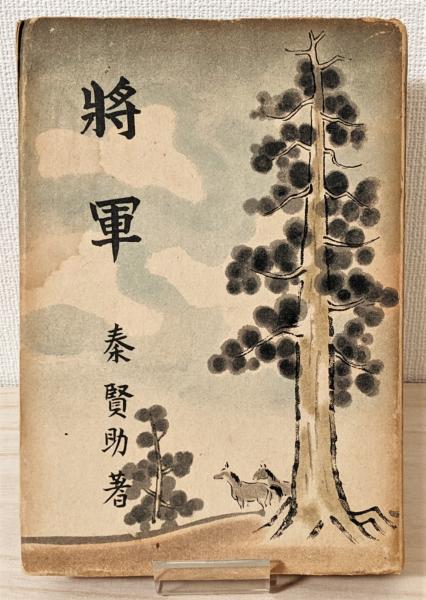 將軍
秦賢助著